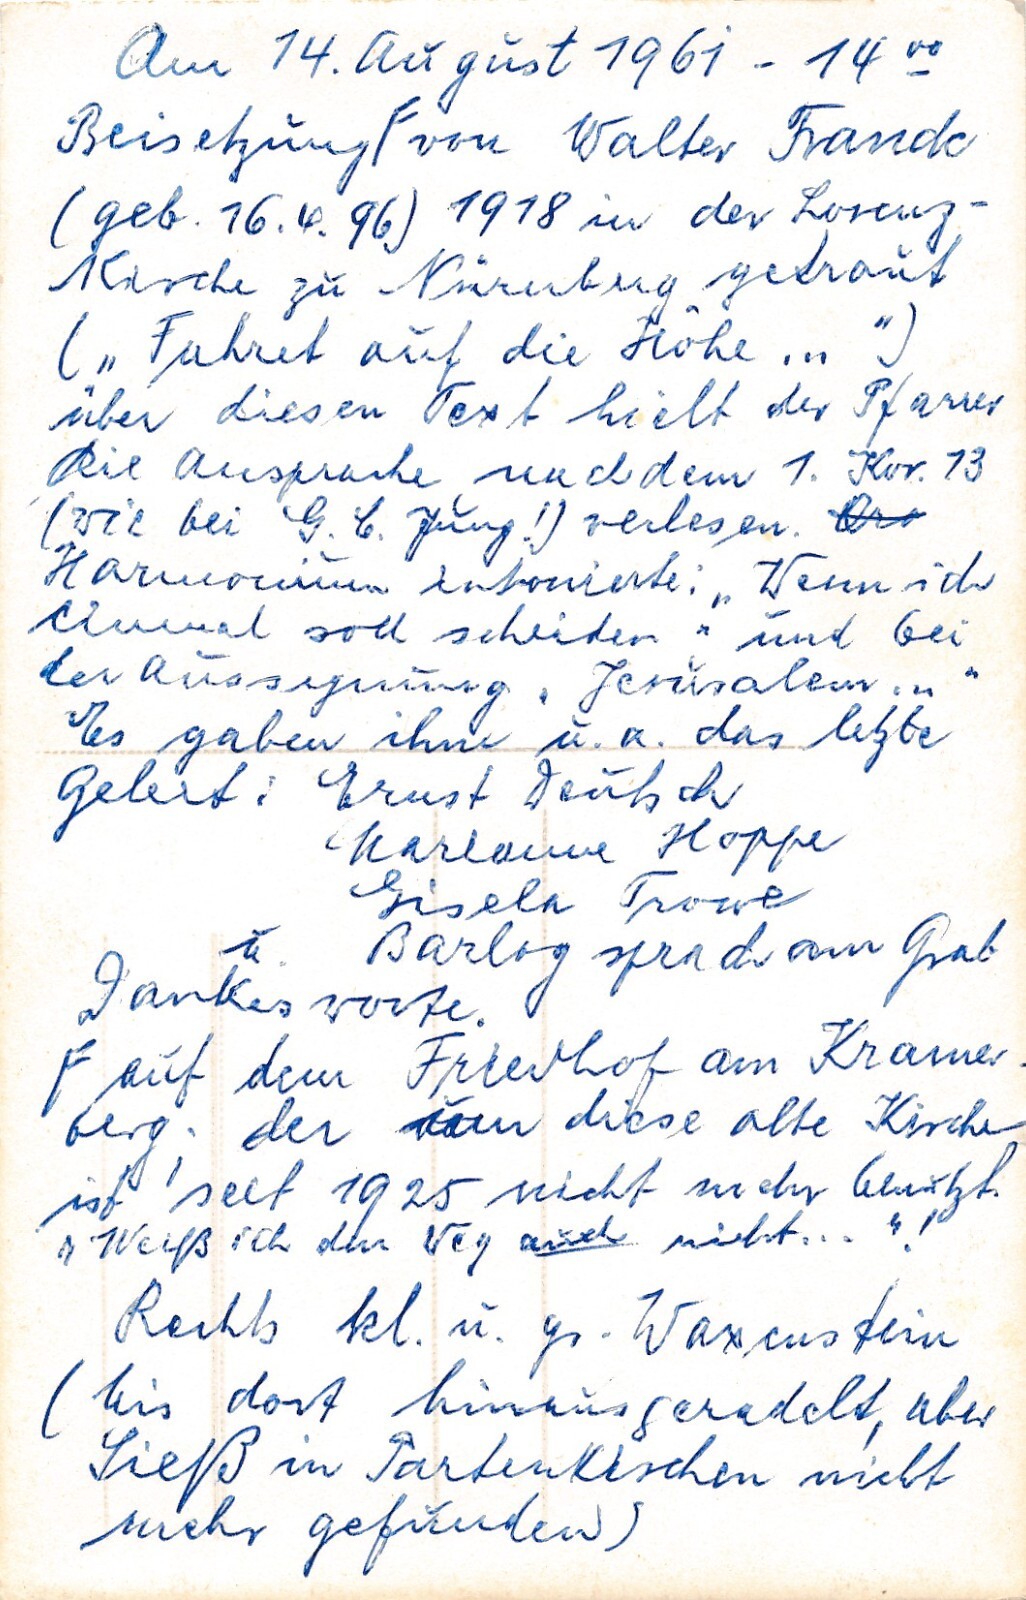 Am 14. August 1961 - 14 00
Beisetzung Γ von Walter Franck
(geb. 16.4.96) 1918 in der Lorenz-
Kirche zu Nürnberg getraut
(„Fahret auf die Höhe ..“)
über diesen Text hielt der Pfarrer
die Ansprache nachdem 1. Kor. 13
(wie bei G. C. Jung!) verlesen.
Harmonium intonierte: „Wenn ich
einmal soll scheiden“ und bei
der Aussegnung „Jerusalem ..“
Es gaben ihm u. a. das letzte
Geleit: Ernst Deutsch
Marianne Hoppe
Gisela Trowe
u. Barlog sprach am Grab
Dankesworte.
Γ auf dem Friedhof am Kramer-
berg, der um diese alte Kirche
ist, seit 1925 nicht mehr benützt.
„Weiß ich den Weg auch nicht...“!
Rechts kl. u. gr. Waxenstein
(bis dort hinausgeradelt, aber
Ließ in Partenkirchen nicht
mehr gefunden)